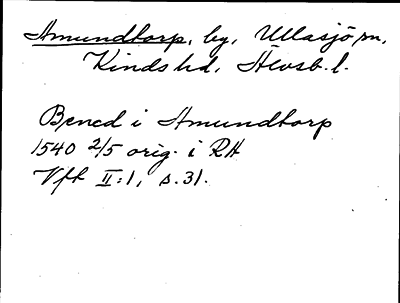 Amundtorp, by, Ullasjö sn,
Kinds hd, Älvsb. l.
Bened i Amundtorp
1540 2/5 orig. i RA
Vft II:1, s. 31.